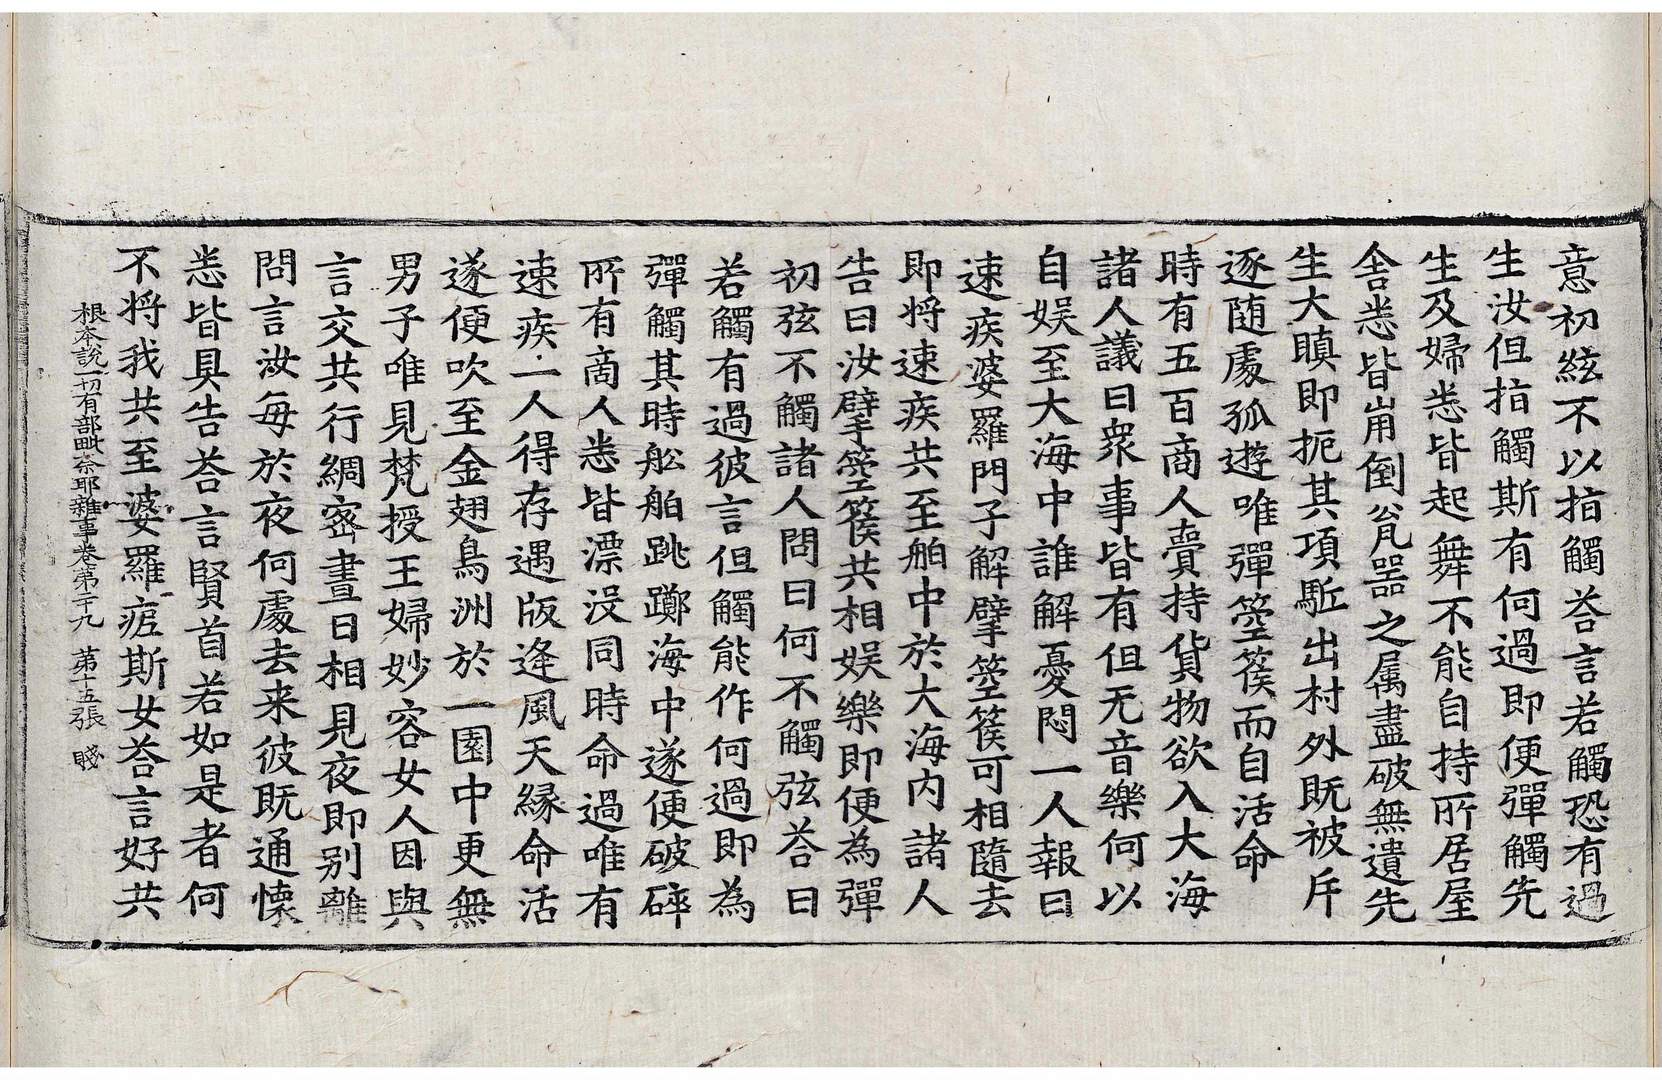 意初絃不以指觸荅言若觸恐有過
生汝但指觸斯有何過即便彈觸先
生及婦悉皆起舞不能自持所居屋
舍悉皆崩倒瓮器之属盡破無遺先
生大瞋即扼其項駈出村外既被斥
逐随處孤遊唯彈箜篌而自活命
時有五百商人賷持貨物欲入大海
諸人議曰衆事皆有但无音樂何以
自娱至大海中誰解憂悶一人報曰
速疾婆羅門子解擘箜篌可相隨去
即将速疾共至舶中於大海内諸人
告曰汝擘箜篌共相娱樂即便為彈
初弦不觸諸人問曰何不觸弦荅曰
若觸有過彼言但觸能作何過即為
彈觸其時舩舶跳躑海中遂便破碎
所有啇人悉皆漂没同時命過唯有
速疾一人得存遇版逢風天縁命活
遂便吹至金翅鳥洲於一園中更無
男子唯見梵授王婦妙容女人因與
言交共行綢密晝日相見夜即别離
問言汝每於夜何處去来彼既通懐
悉皆具告荅言賢首若如是者何
不将我共至婆羅痆斯女荅言好共
根本說一切有部毗奈耶雜事卷第二十九 第十五張 賤